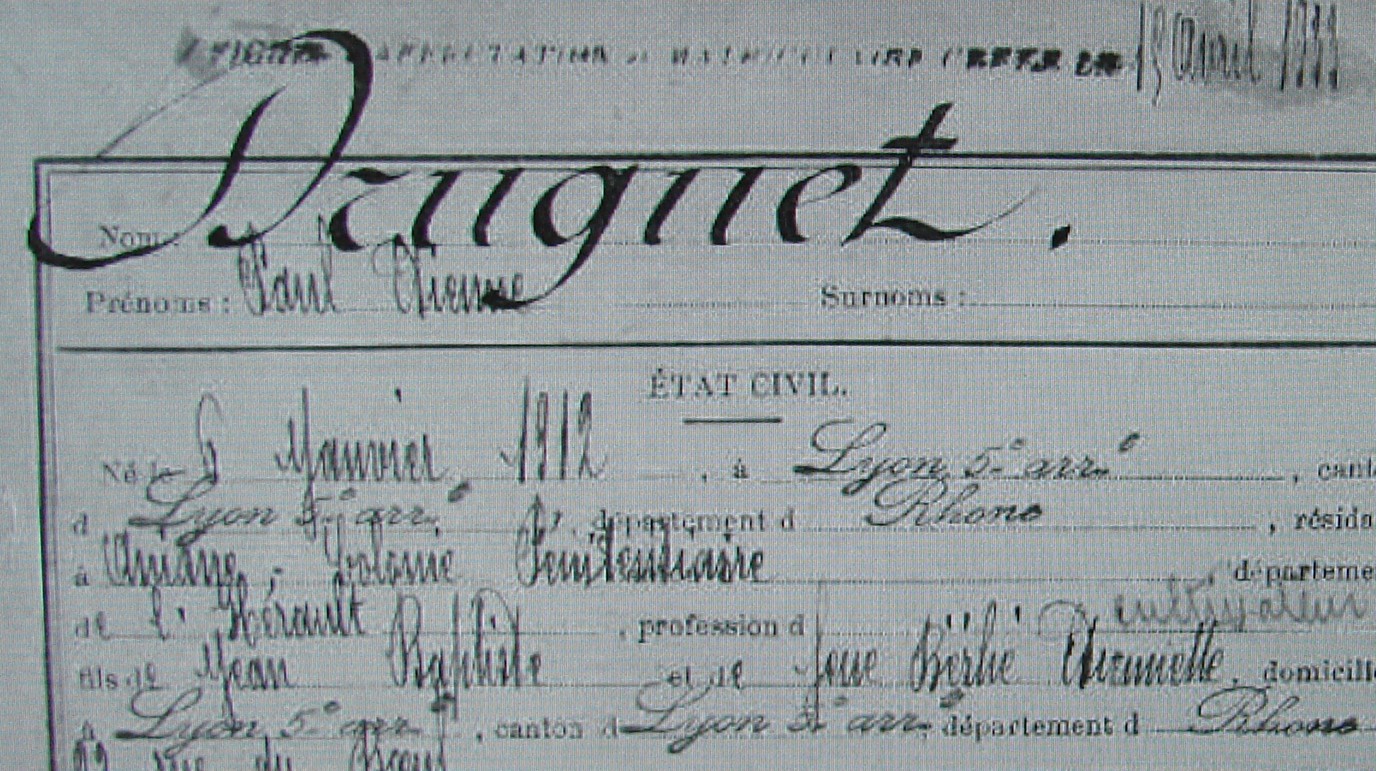 FICHIER AFFECTATION et MATRICULAIRE CREES EN 15 Avril 1933
Nom : Druguet.
Prénoms : Paul Etienne Surnoms :
ÉTAT CIVIL.
Né le 6 Janvier 1912, à Lyon 5e arrt, cant
d Lyon 5e arrt, département d Rhône, résida
à Aniane, Colonie Pénitentiaire, départeme
de l'Hérault, profession d cultivateur
fils de Jean Baptiste et de Berthe, domicilié
à Lyon 5e arrt, canton d Lyon 5e arrt département d Rhône
rue du Boeuf